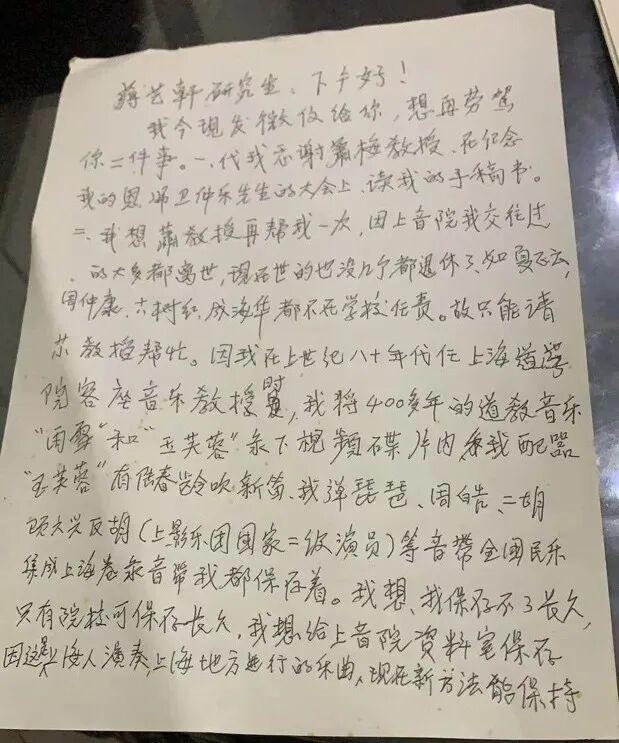 蒋艺轩研究生、下午好！
我今现发微仪给你，想再劳驾
你二件事。一、代我感谢萧梅教授、在纪念
我的恩师卫仲乐先生的大会上、读我的手稿书。
二、我想萧教授再帮我一次，因上音院我交往过
的大多都离世，现在世的也没几个都退休了、如夏飞云，
周仲康、树红，成海华都不在学校任责。故只能请
教授帮忙。因我在上世纪八十年代任上海道学
院客座音乐教授时，我将400多年的道教音乐
“雨雪”和“玉芙蓉”录下视频碟片内我配器
“玉芙蓉”有陆春龄吹新笛、我弹琵琶、周皓、二胡
项大兴反胡（上影乐团国家二级演员）等音带全国民乐
集成上海卷录音带我都保存着。我想、我保存不了长久，
只有院校可保存长久，我想给上音院资料室保存
因这是上海人演奏，上海地方进行的乐曲、现在新方法能保持